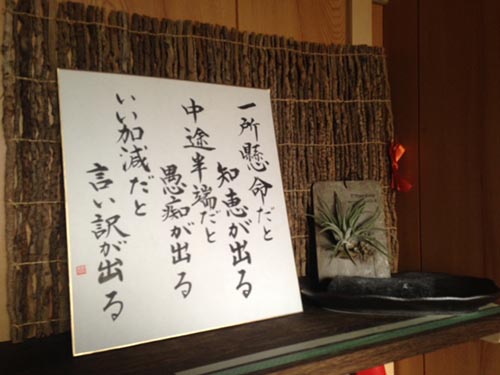 一所懸命だと
知恵が出る
中途半端だと
愚痴が出る
いい加減だと
言い訳が出る